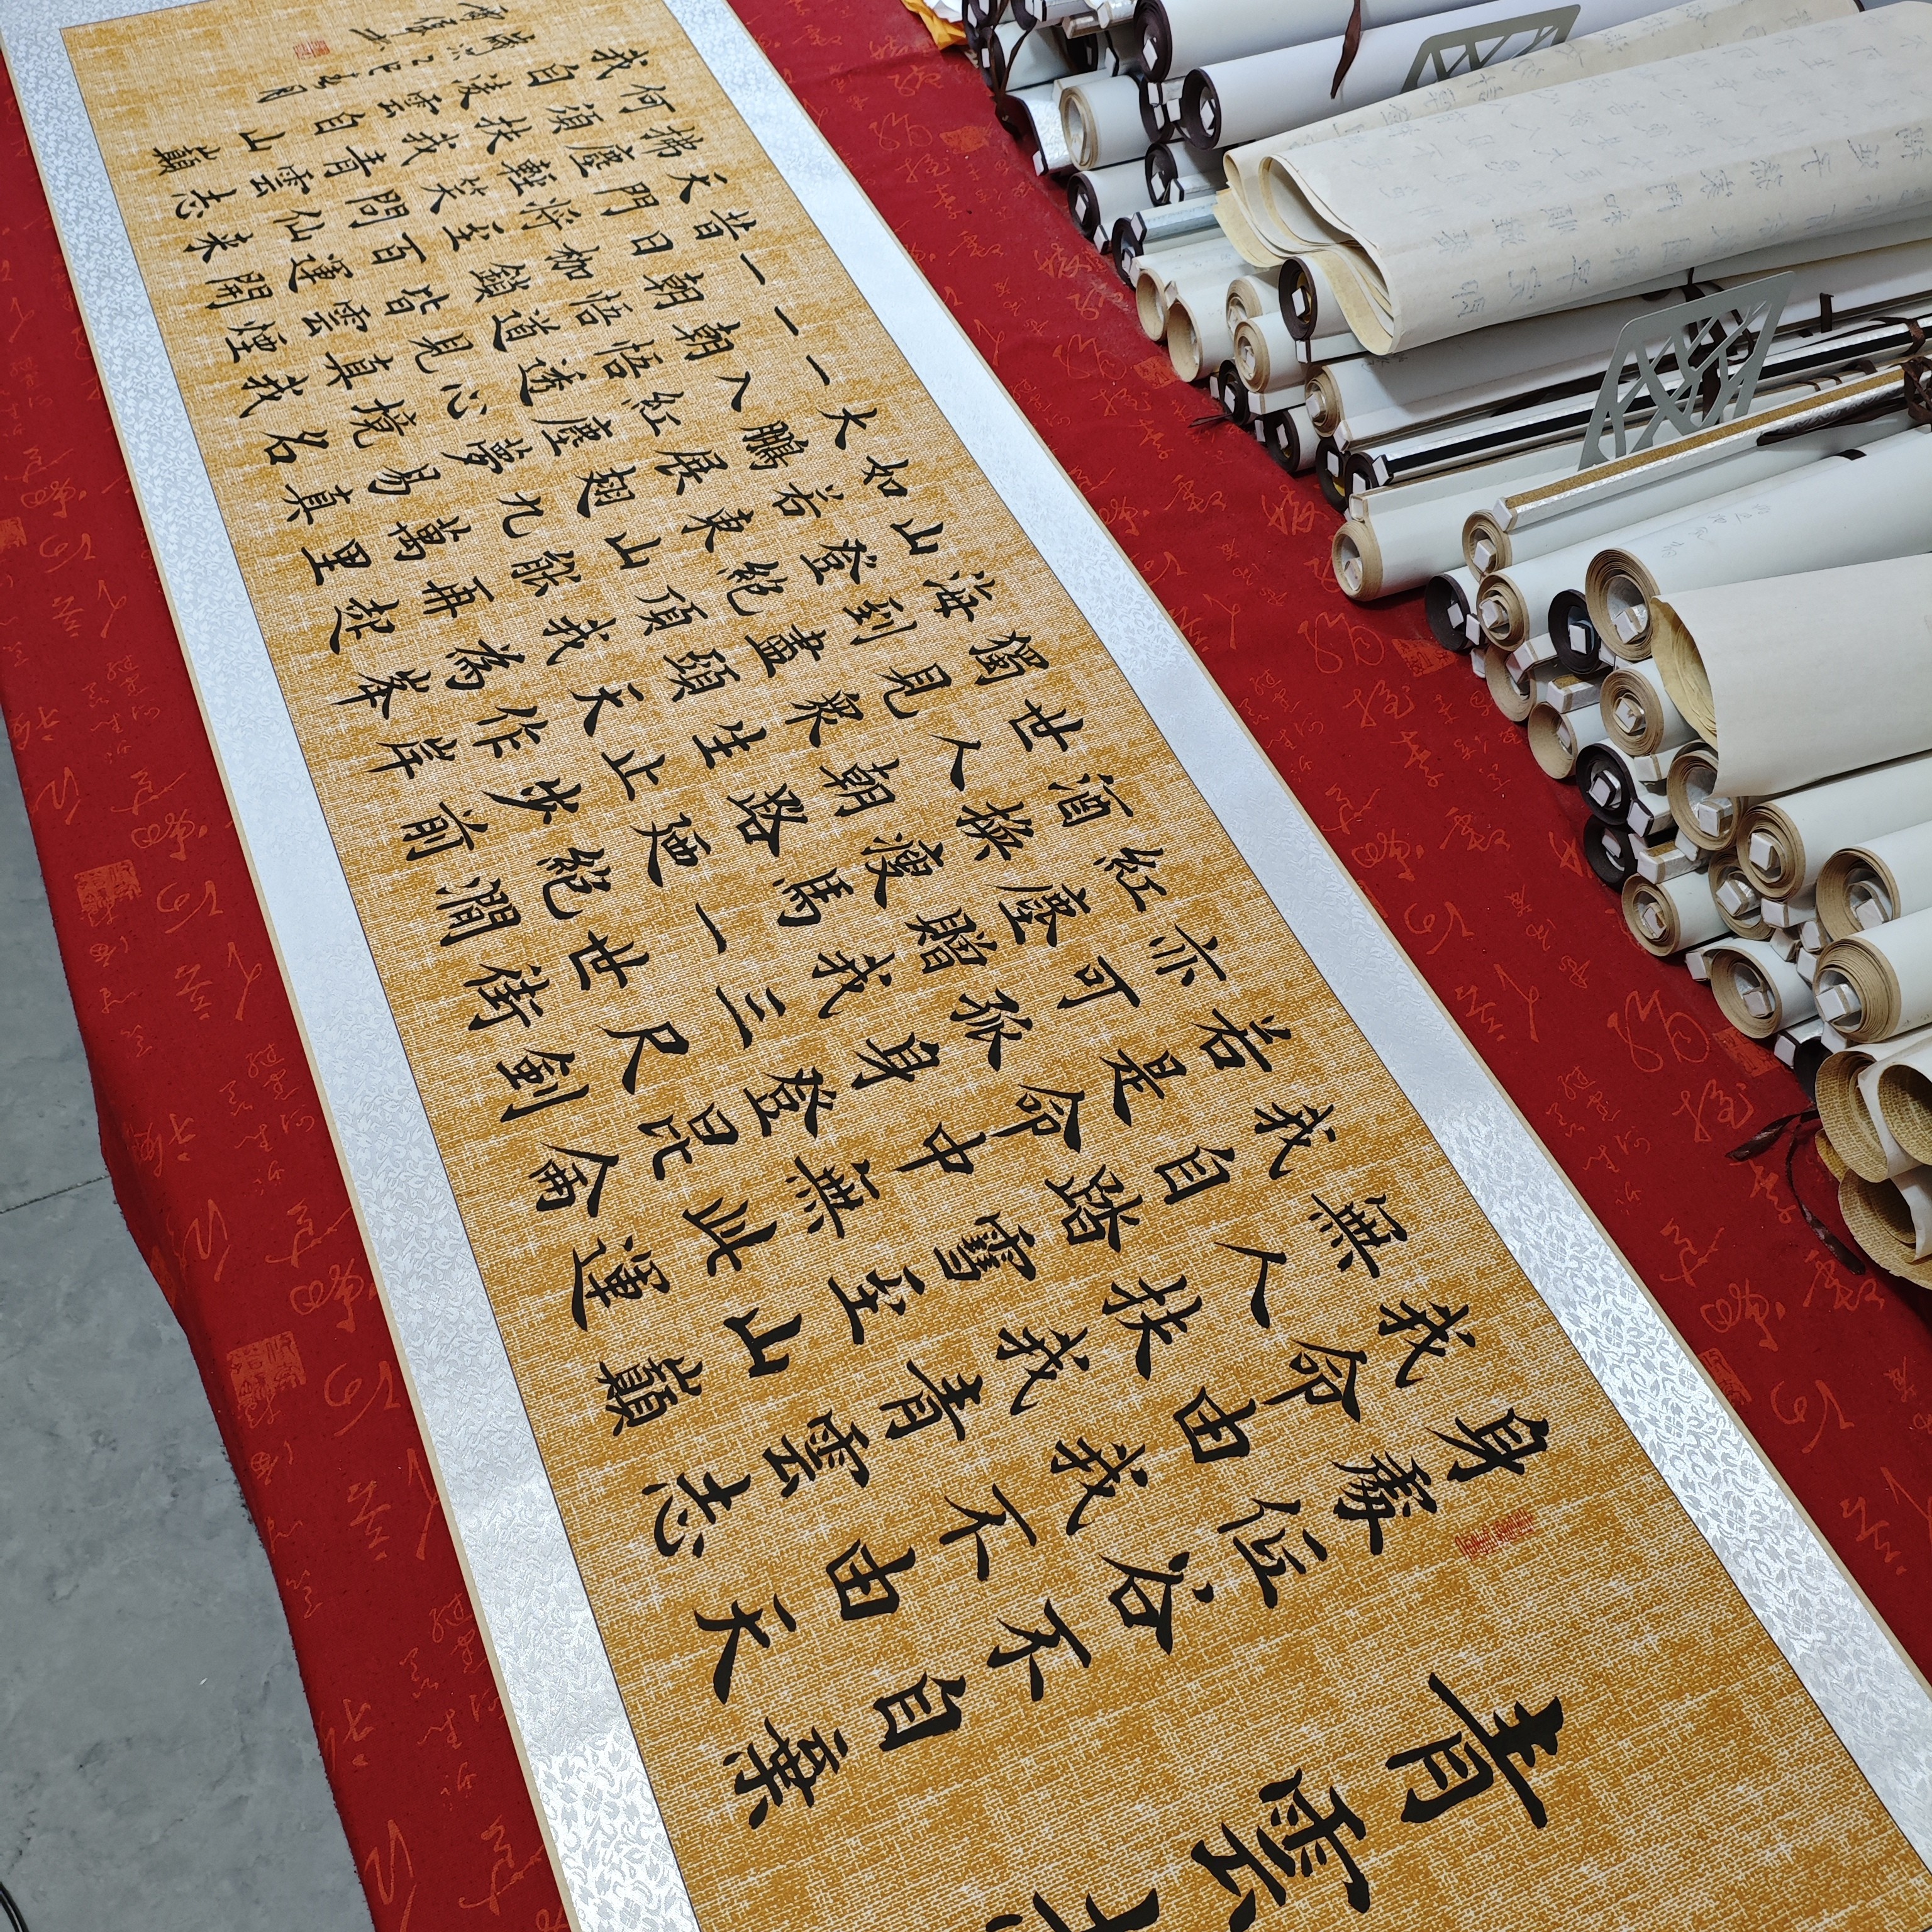 青雲志
身處低谷不自棄
我命由我不由天
無人扶我青雲志
我自踏雪至山巔
若是命中無此運
亦可孤身登昆侖
紅塵贈我三尺劍
酒換瘦馬一世街
世人朝路廼絕澗
獨見眾生止步前
海到盡頭天作岸
山登絕頂我為峯
如若東山能再起
大鵬展翅九萬里
一入紅塵夢易真
一朝悟透心境名
一朝悟道見真我
昔日枷鎖皆雲煙
天門將至百運開
拂塵輕笑問仙來
何須扶我青雲志
我自淩雲自山巔
乙巳春月